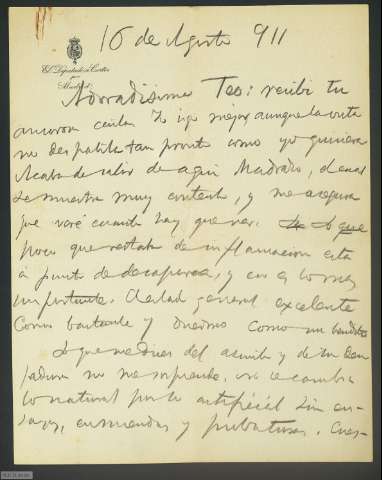 16 de Agosto 911
El Diputado a Cortes
por
Madrid
Adoradísimo Teo: recibí tu
carta. Yo sigo mejor aunque la vista
no despabila tan pronto como yo quisiera
Acaba de salir de aquí Madrazo, el cual
se muestra muy contento, y me asegura
que veré cuanto hay que ver. Lo que
poco que restaba de inflamación está
a punto de desaparecer, y eso es lo más
importante. El estado general excelente
Como bastante y duermo como un bendito
Lo que me dices del asunto y de tu
no me sorprende, no se cambia
lo natural por lo artificial sin en-
sayos, enmiendas y probaturas. Cues-